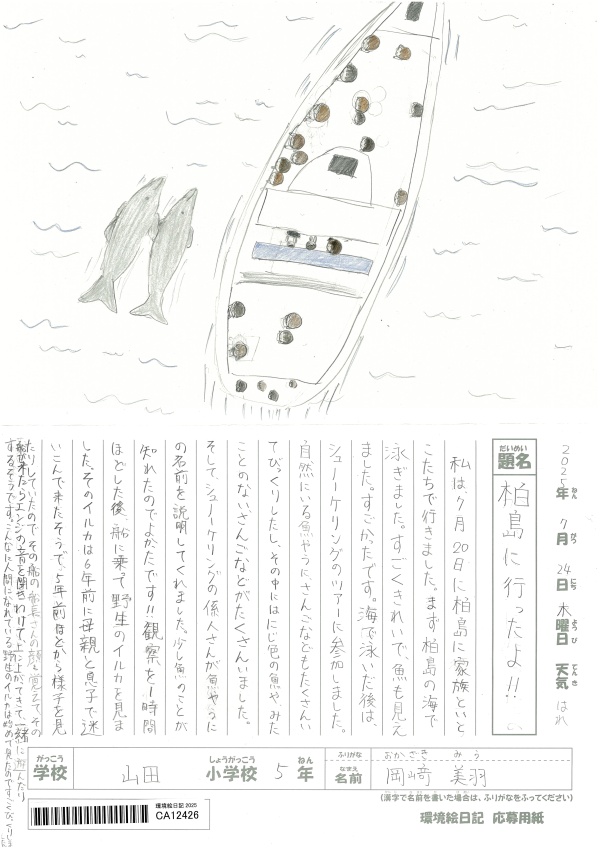 2025年ねん 7月がつ 24日にち 木曜日ようび 天気てんき はれ
だいめい
題名 柏島に行ったよ!!
私は7月20日に柏島に家族といと
こたちで行きました。まず柏島の海で
泳ぎました。すごくきれいで、魚も見え
ました。すごかたです。海で泳いだ後は、
シュノーケリングのツアーに参加しました。
自然にいる魚やうにさんごなどもたくさんい
てびっくりしたし、その中ににじ色の魚や、みた
ことのないさんごなどがたくさんいました。
そして、シュノーケリングの係人さんが魚やうに
の名前を説明してくれました。少し魚のことが
知れたのでよかたです!!観察を1時間
ほどした後、船に乗って野生のイルカを見ま
した。そのイルカは6年前に母親と息子で迷
いこんで来たそうで、5年前ほどから様子を見
たりしていたので、その船の船長さんの顔を覚えて、その
船が来たらエンジンの音を聞きわけて、上に上がってきて一緒に遊んだり
するそうです。こんなに人間になれている野生のイルカは始めて見たのですごくびっくりしま
がっこう
学校 山田 しょうがっこう 小学校 5 ねん 年
ふりがな おかざき みう
なまえ 名前 岡﨑 美羽
(漢字で名前を書いた場合は、ふりがなをふってください)
環境絵日記 2025
CA12426
環境絵日記 応募用紙